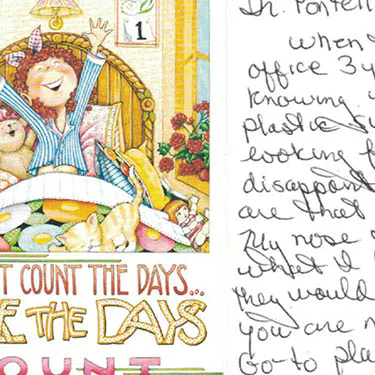 1
T COUNT THE DAYS...
E THE DAYS
OUNT
When
office 3 y
Knowing
plastic
looking f
disappoint
are that
My nose
what I
they would
you are
Go-to pla